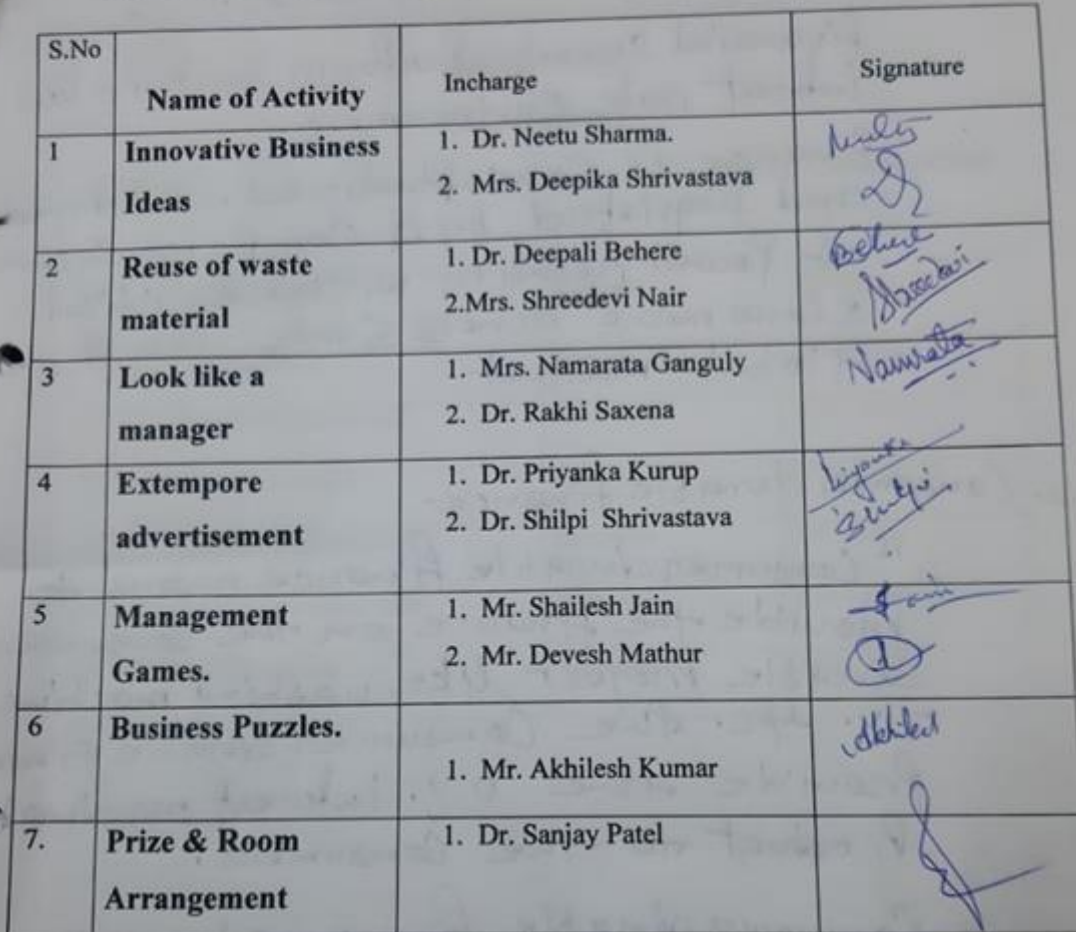 S.No
Name of Activity
Incharge
Signature
1
Innovative Business
Ideas
1. Dr. Neetu Sharma.
2. Mrs. Deepika Shrivastava
2
Reuse of waste
material
1. Dr. Deepali Behere
2.Mrs. Shreedevi Nair
Behere
Shreedevi
3
Look like a
manager
1. Mrs. Namarata Ganguly
2. Dr. Rakhi Saxena
Namrata
4
Extempore
advertisement
1. Dr. Priyanka Kurup
2. Dr. Shilpi Shrivastava
Priyanka
Shilpi
5
Management
Games.
1. Mr. Shailesh Jain
2. Mr. Devesh Mathur
6
Business Puzzles.
1. Mr. Akhilesh Kumar
7.
Prize & Room
Arrangement
1. Dr. Sanjay Patel